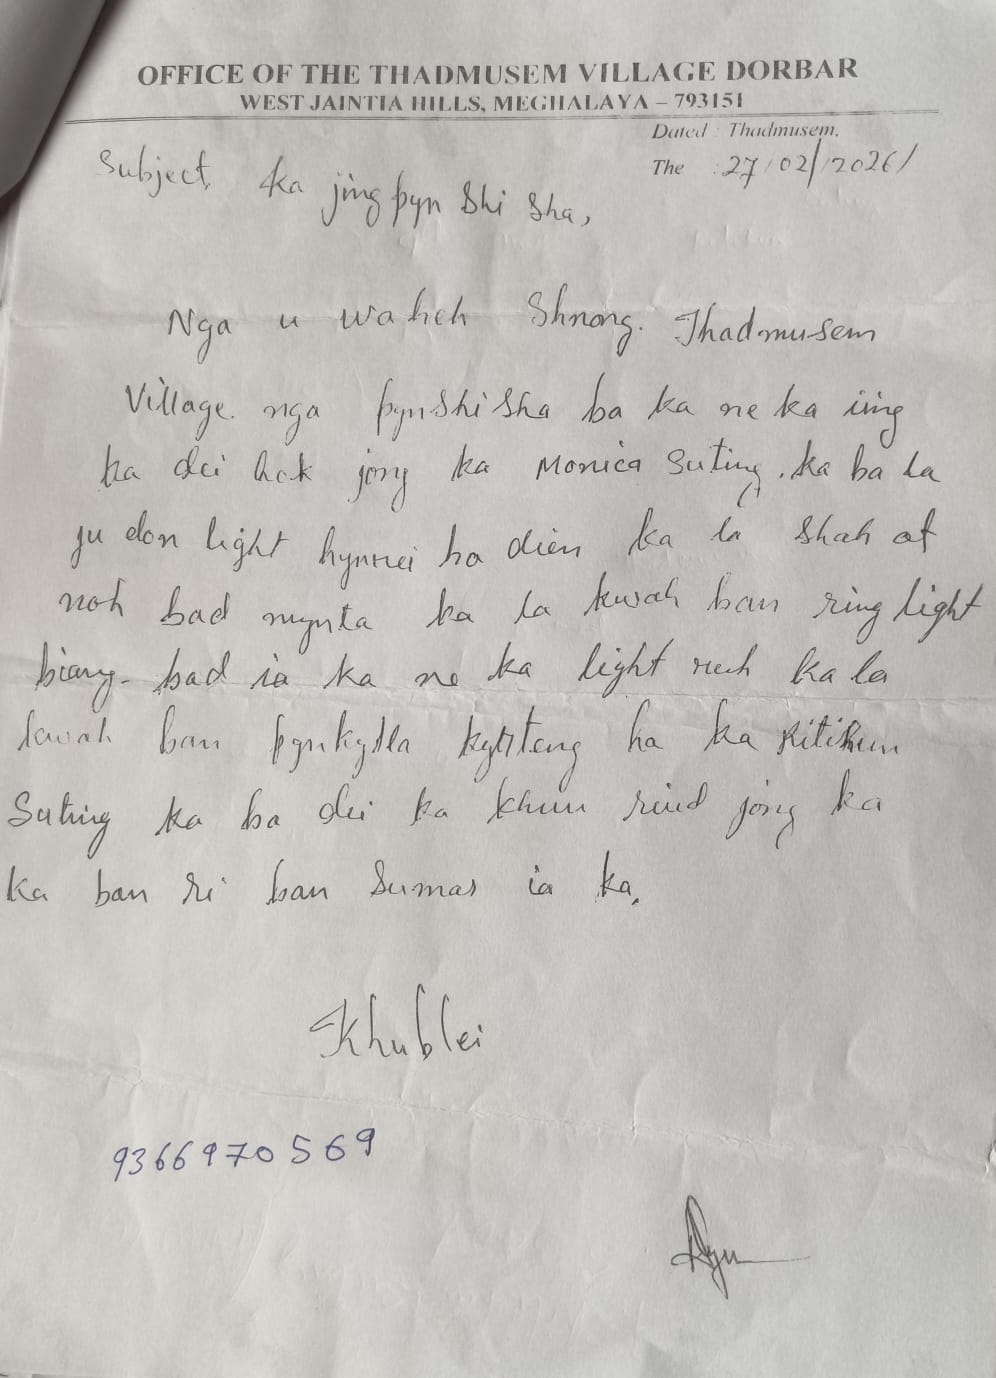 OFFICE OF THE THADMUSEM VILLAGE DORBAR
WEST JAINTIA HILLS, MEGHALAYA – 793151
Dated : Thadmusem.
The : 27/02/2026/
Subject, ka jing pyn Shi Sha,
Nga u waheh Shnong. Thadmusem
Village. nga pynshisha ba ka ne ka iing
ka dei hok jong ka Monica Suting. ka ba la
ju don light hynrei ha dien ka la shah ot
noh bad mynta ka la kwah ban ring light
biang. bad ia ka ne ka light ruh ka la
kwah ban pynkylla kyrteng ha ka Ritihun
Suting ka ba dei ka khun riud jong ka
ka ban ri ban Sumar ia ka.
Khublei
9366970569